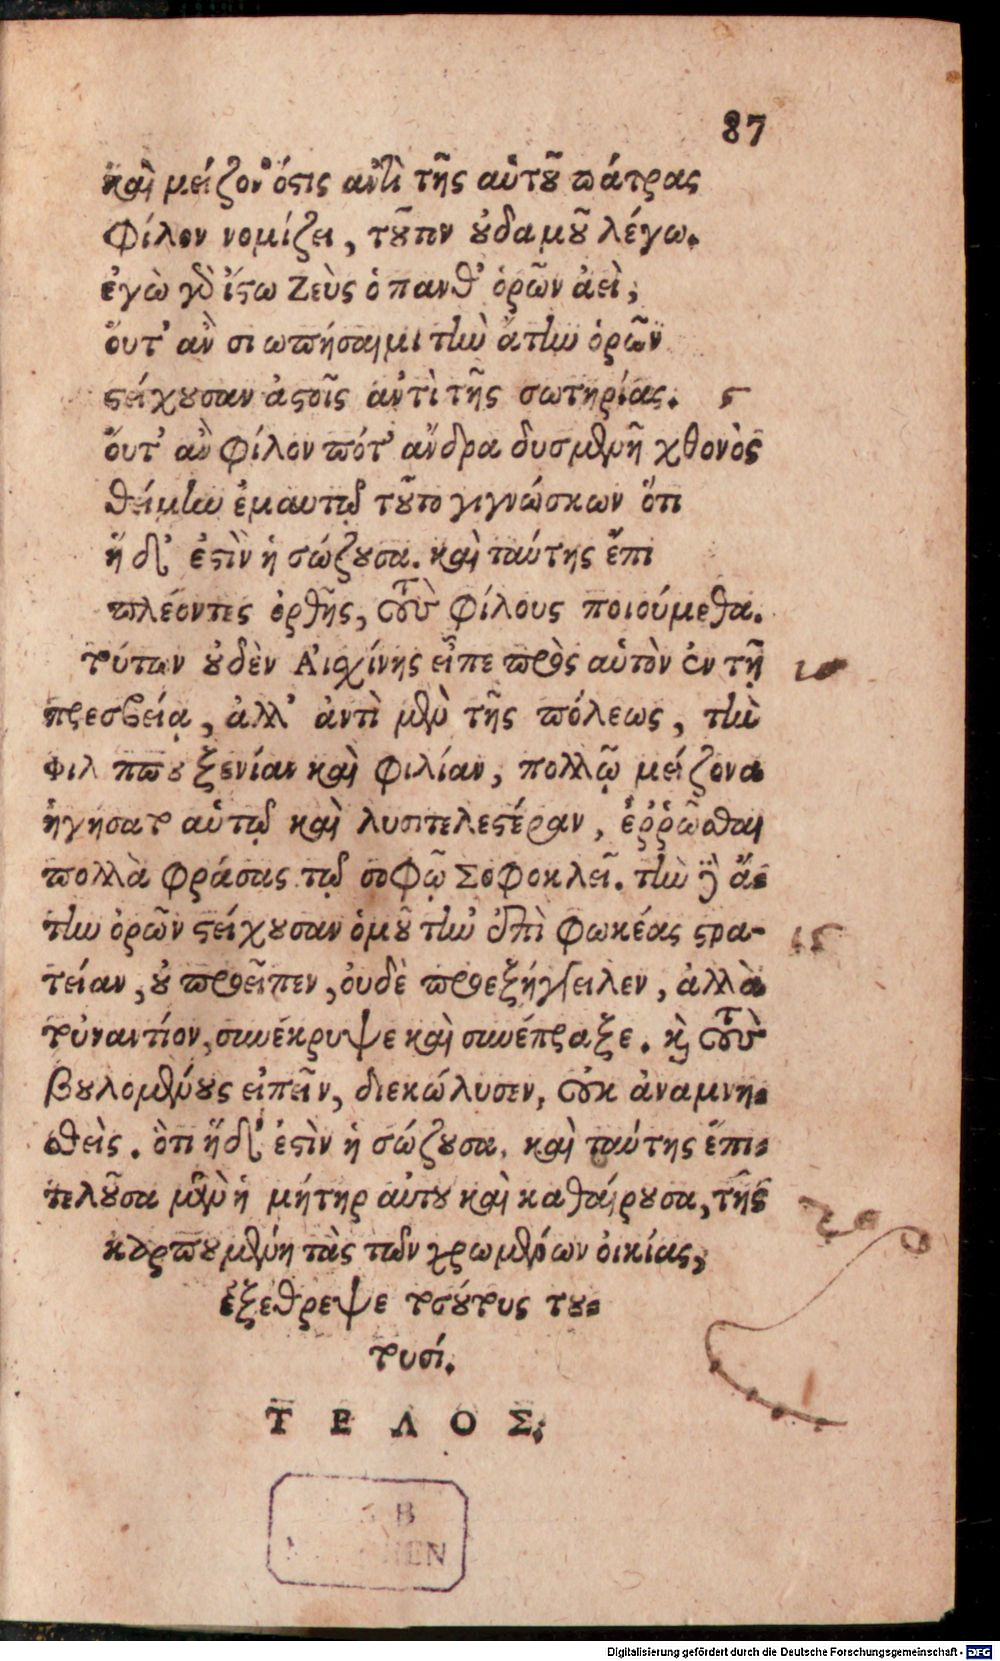 87
καὶ μείζον' ὅστις ἀντὶ τῆς αὑτοῦ πάτρας
φίλον νομίζει, τοῦτον οὐδαμοῦ λέγω.
ἐγὼ γὸ ἴστω Ζεὺς ὁ πανθ' ὁρῶν ἀεὶ,
ὄυτ' ἂν σιωπήσαιμι τὴν ἄτην ὁρῶν
στείχουσαν ἀστοῖς ἀντὶ τῆς σωτηρίας. 5
ὄυτ' ἂν φίλον πότ' ἄνδρα δυσμενῆ χθονὸς
θείμην ἐμαυτῷ τοῦτο γιγνώσκων ὅτι
ἥ δ' ἐστὶν ἡ σώζουσα. καὶ ταύτης ἔπι
πλέοντες ὀρθῆς, τοὺς φίλους ποιούμεθα.
τούτων οὐδὲν Αἰσχίνης εἶπε πρὸς αὑτὸν ἐν τῇ 10
πρεσβείᾳ, ἀλλ' ἀντὶ μὲν τῆς πόλεως, τὴν
Φιλ ππου ξενίαν καὶ φιλίαν, πολλῷ μείζονα
ἡγήσατο αὑτῷ καὶ λυσιτελεστέραν, ἐῤῥῶσθαι
πολλὰ φράσας τῷ σοφῷ Σοφοκλεῖ. τὴν δὲ ἄ-
την ὁρῶν στείχουσαν ὁμοῦ τὴν ἐπὶ φωκέας στρα- 15
τείαν, οὐ προεῖπεν, ὀυδὲ προεξήγγειλεν, ἀλλὰ
τοὐναντίον, συνέκρυψε καὶ συνέπραξε. καὶ τοὺς
βουλομένους εἰπεῖν, διεκώλυσεν, οὐκ ἀναμνη-
σθεὶς. ὁτι ἥδ' ἐστὶν ἡ σώζουσα, καὶ ταύτης ἔπι-
τελοῦσα μὲν ἡ μήτηρ αὐτου καὶ καθαίρουσα, τῆς 20
καρπουμένη τὰς τῶν χρωμένων ὀικίας,
ἐξέθρεψε τοσούτους του-
τουσί.
ΤΕΛΟΣ.
B
EN
Digitalisierung gefördert durch die Deutsche Forschungsgemeinschaft - DFG